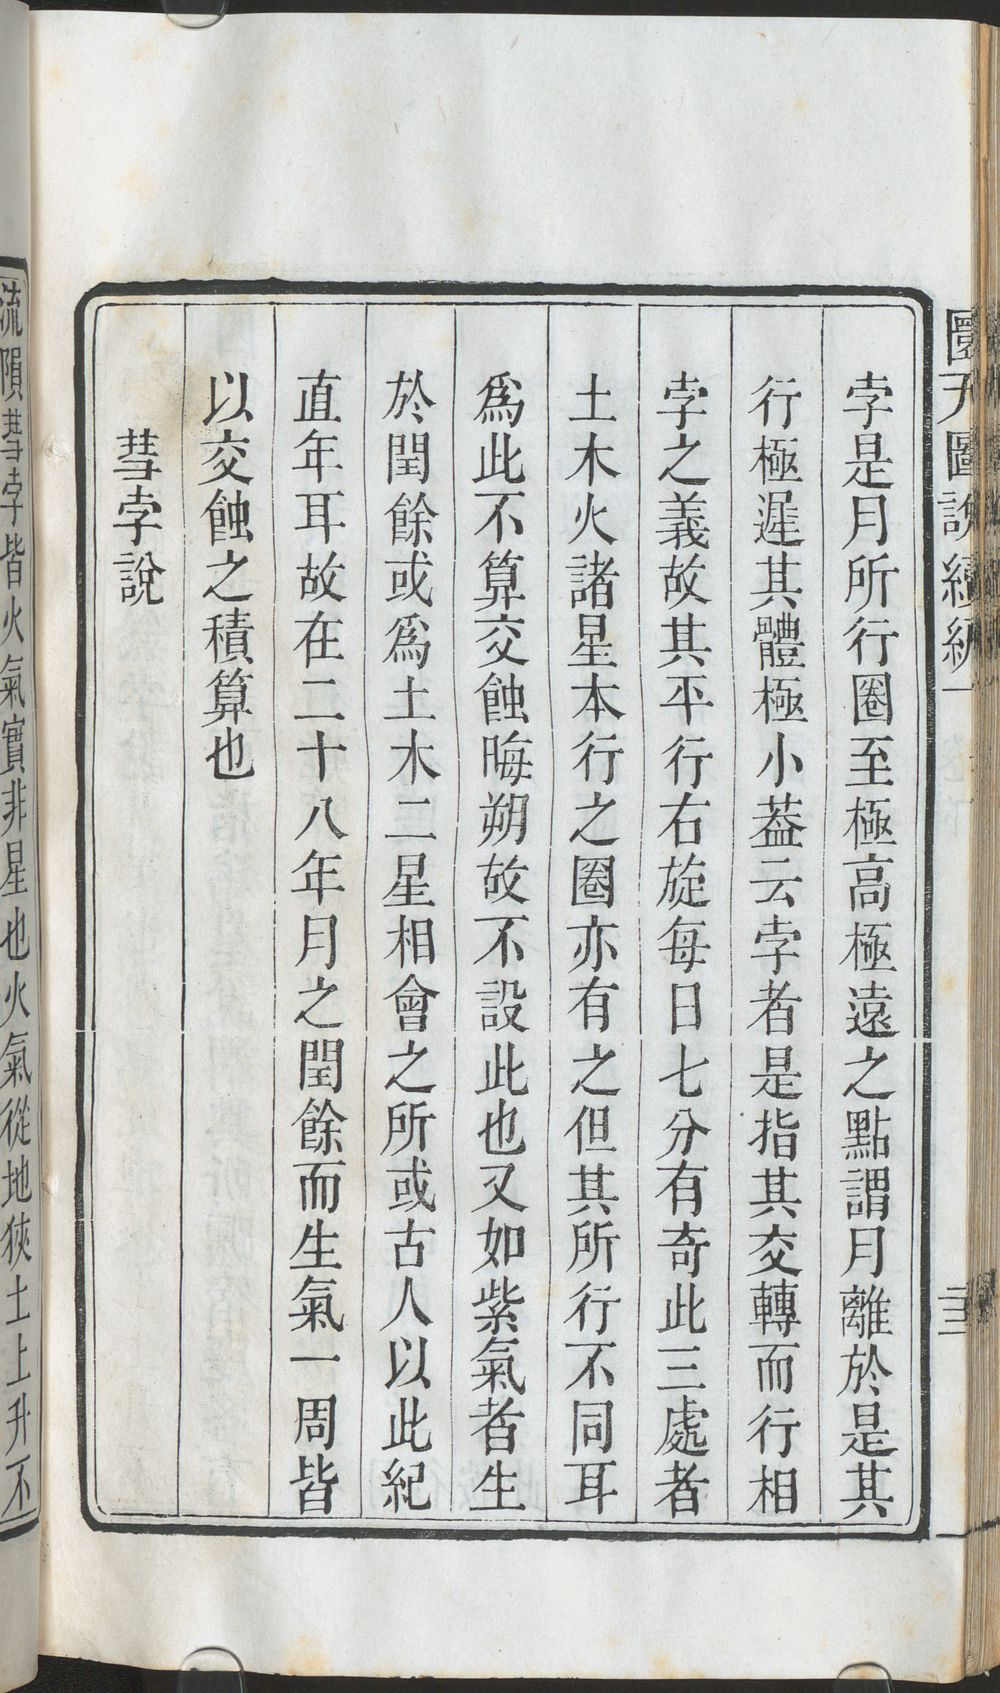 圜天圖說續編
孛是月所行圈至極高極遠之點謂月離於是其
行極遲其體極小葢云孛者是指其交轉而行相
孛之義故其平行右旋每日七分有奇此三處者
土木火諸星本行之圈亦有之但其所行不同耳
爲此不算交蝕晦朔故不設此也又如紫氣者生
於閏餘或爲土木二星相會之所或古人以此紀
直年耳故在二十八年月之閏餘而生氣一周皆
以交蝕之積算也
彗孛說
流隕彗孛皆火氣實非星也火氣從地狹土上升不